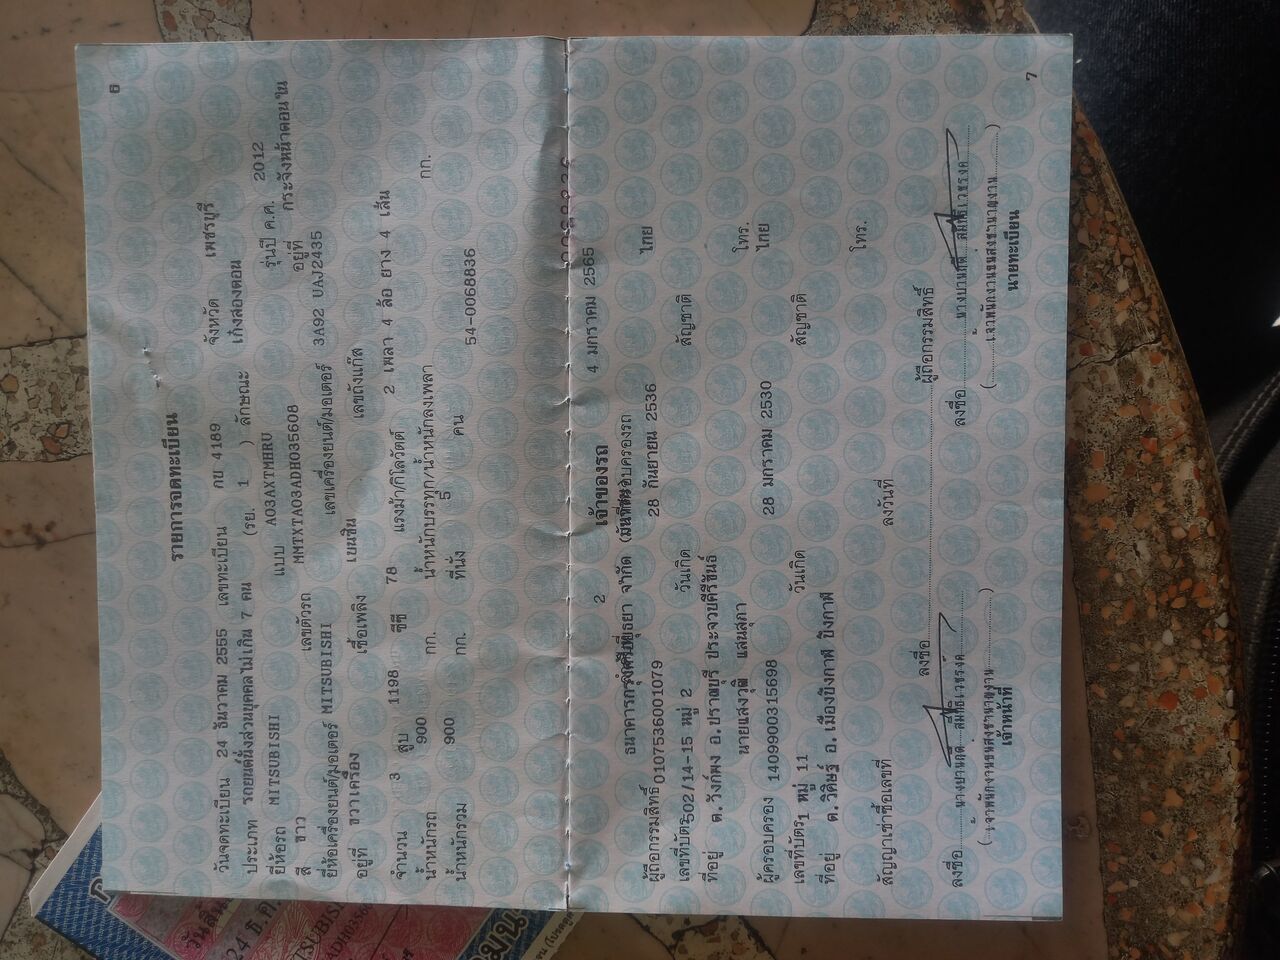 6
รายการจดทะเบียน
วันจดทะเบียน 24 ธันวาคม 2555 เลขทะเบียน กบ 4189 จังหวัด เพชรบุรี
ประเภท รถยนต์นั่งส่วนบุคคลไม่เกิน 7 คน (รย. 1 ) ลักษณะ เก๋งสองตอน
ยี่ห้อรถ MITSUBISHI แบบ A03AXTMHRU รุ่นปี ค.ศ. 2012
สี ขาว เลขตัวรถ MMTXTA03ADH035608 อยู่ที่ กระจังหน้าตอนใน
ยี่ห้อเครื่องยนต์/มอเตอร์ MITSUBISHI เลขเครื่องยนต์/มอเตอร์ 3A92 UAJ2435
อยู่ที่ ขวาเครื่อง เชื้อเพลิง เบนซิน เลขถังแก๊ส
จำนวน 3 สูบ 1198 ซีซี 78 แรงม้า/กิโลวัตต์ 2 เพลา 4 ล้อ ยาง 4 เส้น
น้ำหนักรถ 900 กก. น้ำหนักบรรทุก/น้ำหนักลงเพลา กก.
น้ำหนักรวม 900 กก. ที่นั่ง 5 คน
54-0068836
2 เจ้าของรถ 4 มกราคม 2565
ผู้ถือกรรมสิทธิ์ จำกัด
เลขที่บัตร 0107536001079 วันเกิด 28 กันยายน 2536 สัญชาติ ไทย
ที่อยู่ 502/14-15 หมู่ 2
ต.วังก์พง อ.ปราณบุรี ประจวบคีรีขันธ์ โทร.
ผู้ครอบครอง นายแสงวุฒิ แสนสุภา
เลขที่บัตร 1409900315698 วันเกิด 28 มกราคม 2530 สัญชาติ ไทย
ที่อยู่ 1 หมู่ 11
อ.เมืองบึงกาฬ บึงกาฬ โทร.
สัญญาเช่าซื้อเลขที่ ลงวันที่
ลงชื่อ ผู้ถือกรรมสิทธิ์
ลงชื่อ ลงชื่อ
(เจ้าพนักงานขนส่งชำนาญงาน) (เจ้าพนักงานขนส่งชำนาญงาน)
เจ้าหน้าที่ นายทะเบียน
7